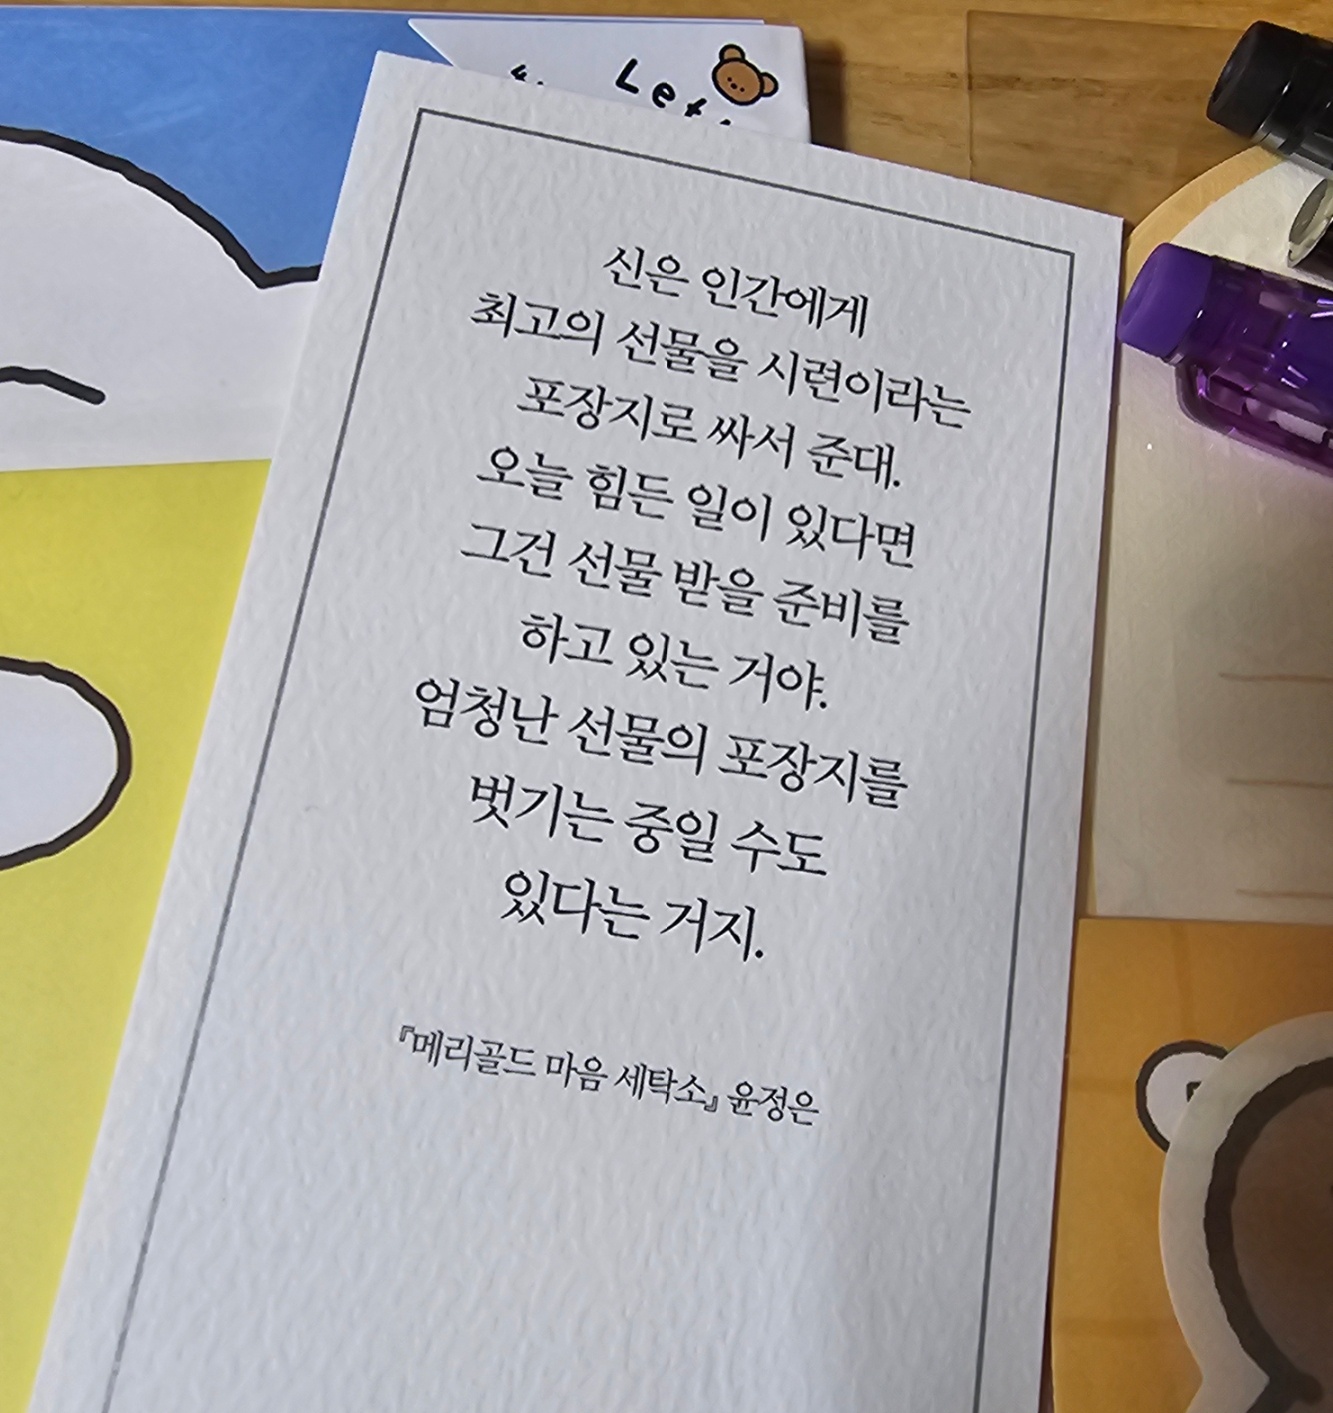 신은 인간에게
최고의 선물을 시련이라는
포장지로 싸서 준대.
오늘 힘든 일이 있다면
그건 선물 받을 준비를
하고 있는 거야.
엄청난 선물의 포장지를
벗기는 중일 수도
있다는 거지.
『메리골드 마음 세탁소』 윤정은